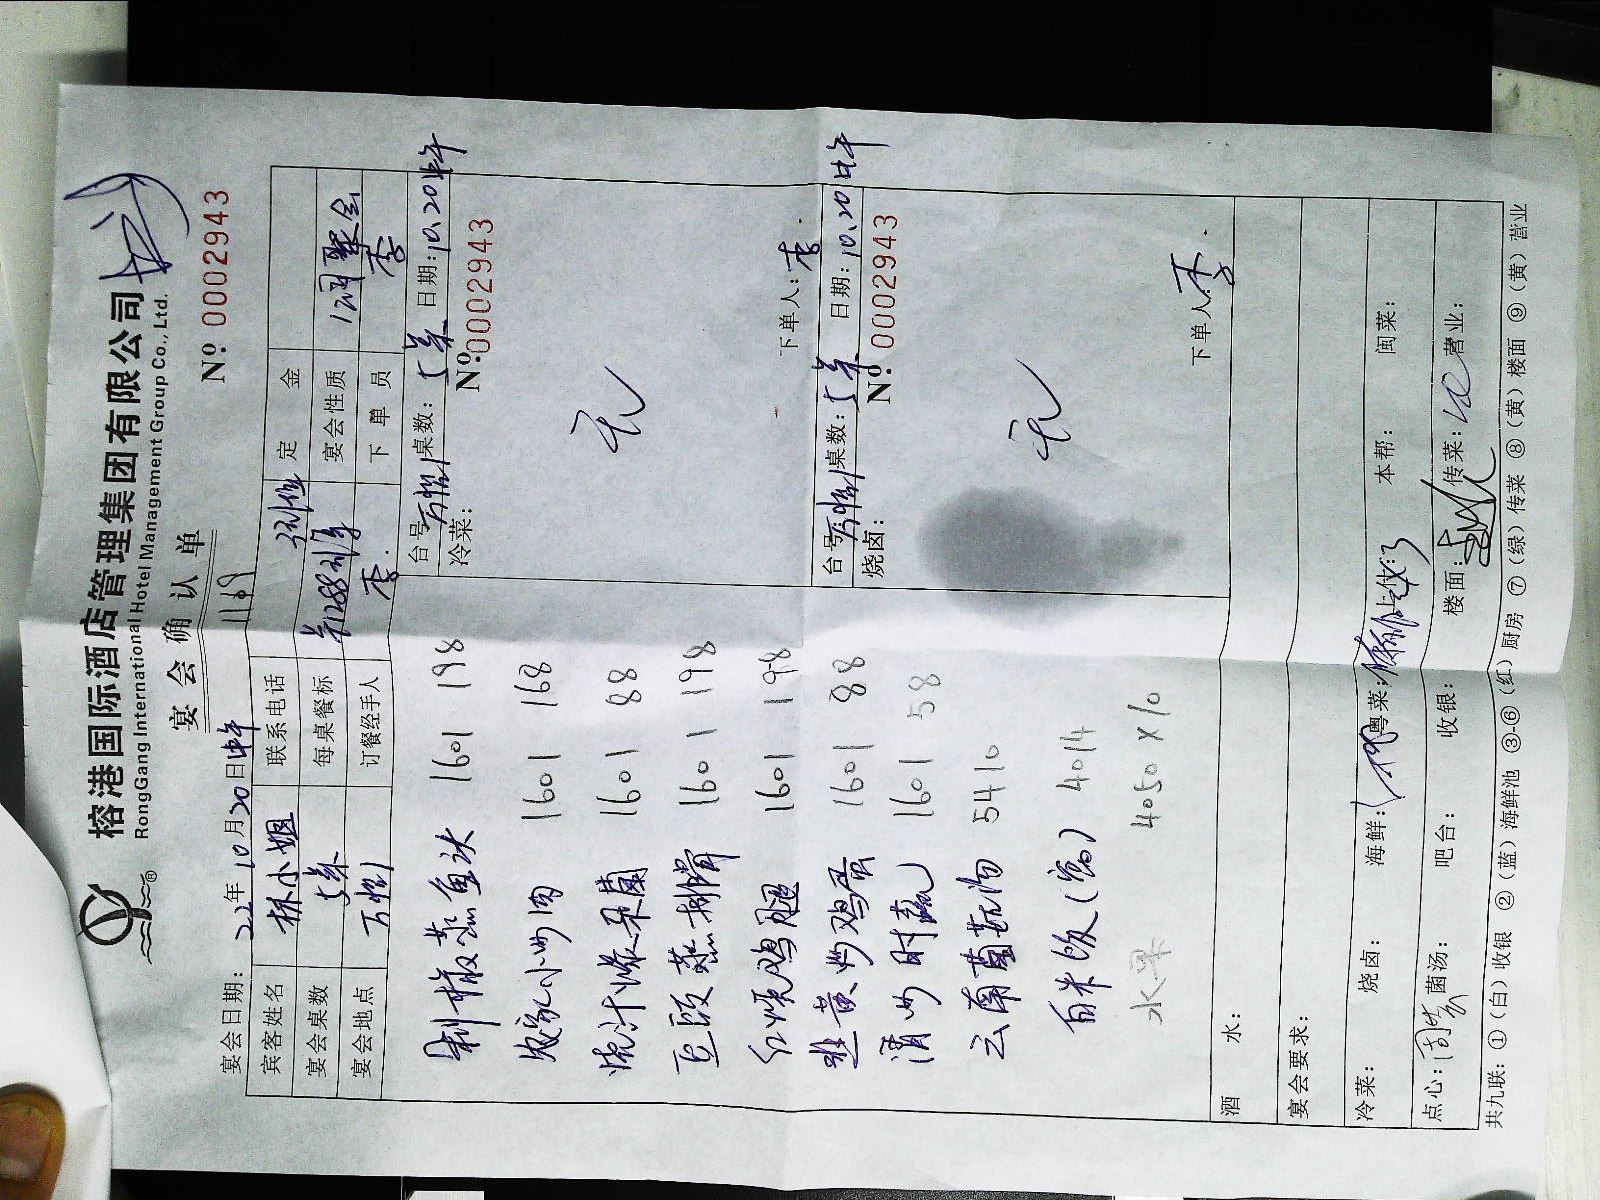 榕港国际酒店管理集团有限公司
RongGang International Hotel Management Group Co., Ltd.
宴会确认单
Nº 0002943
宴会日期: 22年10月20日中午 1169
宾客姓名 林小姐 联系电话 定金
宴会桌数 5桌 每桌餐标 宴会性质 聚会
宴会地点 订餐经手人 李 下单员 李
台号 桌数: 5桌 日期: 10.20中午
冷菜: Nº 0002943
无
下单人: 李
台号 桌数: 5桌 日期: 10.20中午
烧卤: Nº 0002943
无
下单人: 李
剁椒蒸鱼头 1601 198
农家小炒肉 1601 168
烧汁 1601 88
豆豉蒸排骨 1601 198
红烧鸡腿 1601 198
韭黄炒鸡蛋 1601 88
清炒时蔬 1601 58
云南菌菇汤 5410
白米饭 4014
水果 4050×10
酒水:
宴会要求:
冷菜: 烧卤: 海鲜: 粤菜: 本帮: 闽菜:
点心: 菌汤: 吧台: 收银: 楼面: 传菜: 营业:
共九联: ①(白)收银 ②(蓝)海鲜池 ③-⑥(红)厨房 ⑦(绿)传菜 ⑧(黄)楼面 ⑨(黄)营业